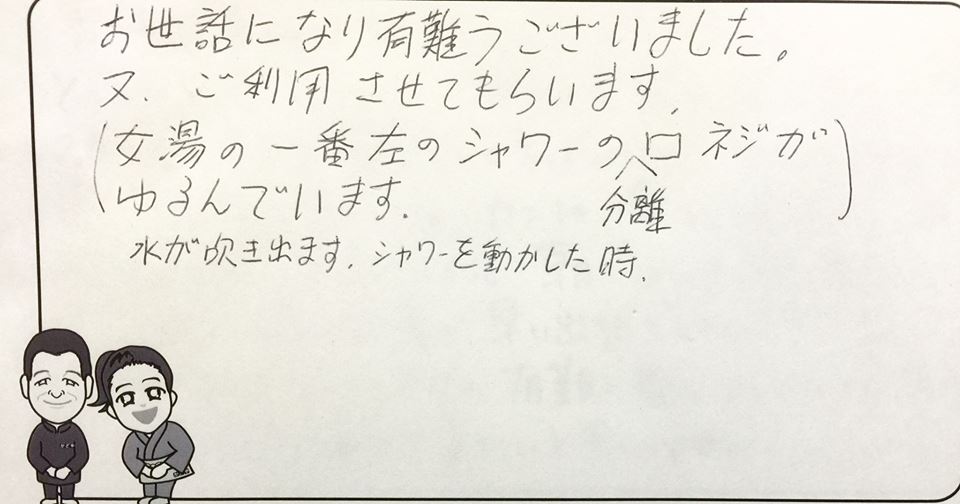 お世話になり有難うございました。
又、ご利用させてもらいます。
(女湯の一番左のシャワーの口ネジが
分離
ゆるんでいます。)
水が吹き出ます。シャワーを動かした時。